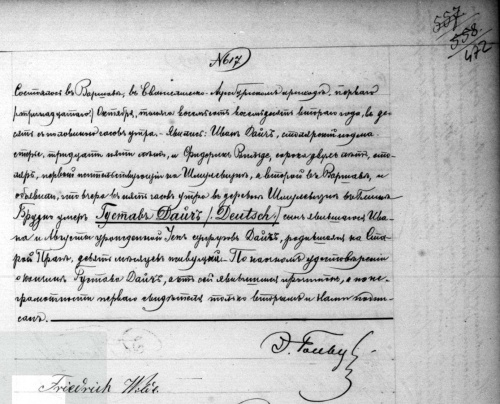 557
558
472
№ 617
Состоялось въ Варшавѣ, въ Евангелическо-Аугсбургскомъ приходѣ, перваго
/тринадцатаго/ Октября, тысяча восемьсотъ восемьдесятъ втораго года, въ де-
сять съ половиною часовъ утра. Явились: Иванъ Дайчъ, столярскій подма-
стеръ, тридцати пяти лѣтъ, и Фридрихъ сорока двухъ лѣтъ, сто-
ляръ, первый жительствующій на Шмулевизнѣ, а второй въ Варшавѣ, и
объявили, что вчера въ пять часовъ утра въ деревнѣ Шмулевизнѣ въ Гминѣ
Брудно умеръ Густавъ Дайчъ /Deutsch/ сынъ явившагося Ива-
на и Августы урожденной супруговъ Дайчъ, родившійся на Ста-
рой Прагѣ, девять мѣсяцевъ По настномъ удостовѣреніи
о кончинѣ Густава Дайчъ, актъ сей явившимся прочтенъ, а по не-
грамотности перваго свидѣтеля только вторымъ и Нами подпи-
санъ.
Friedrich